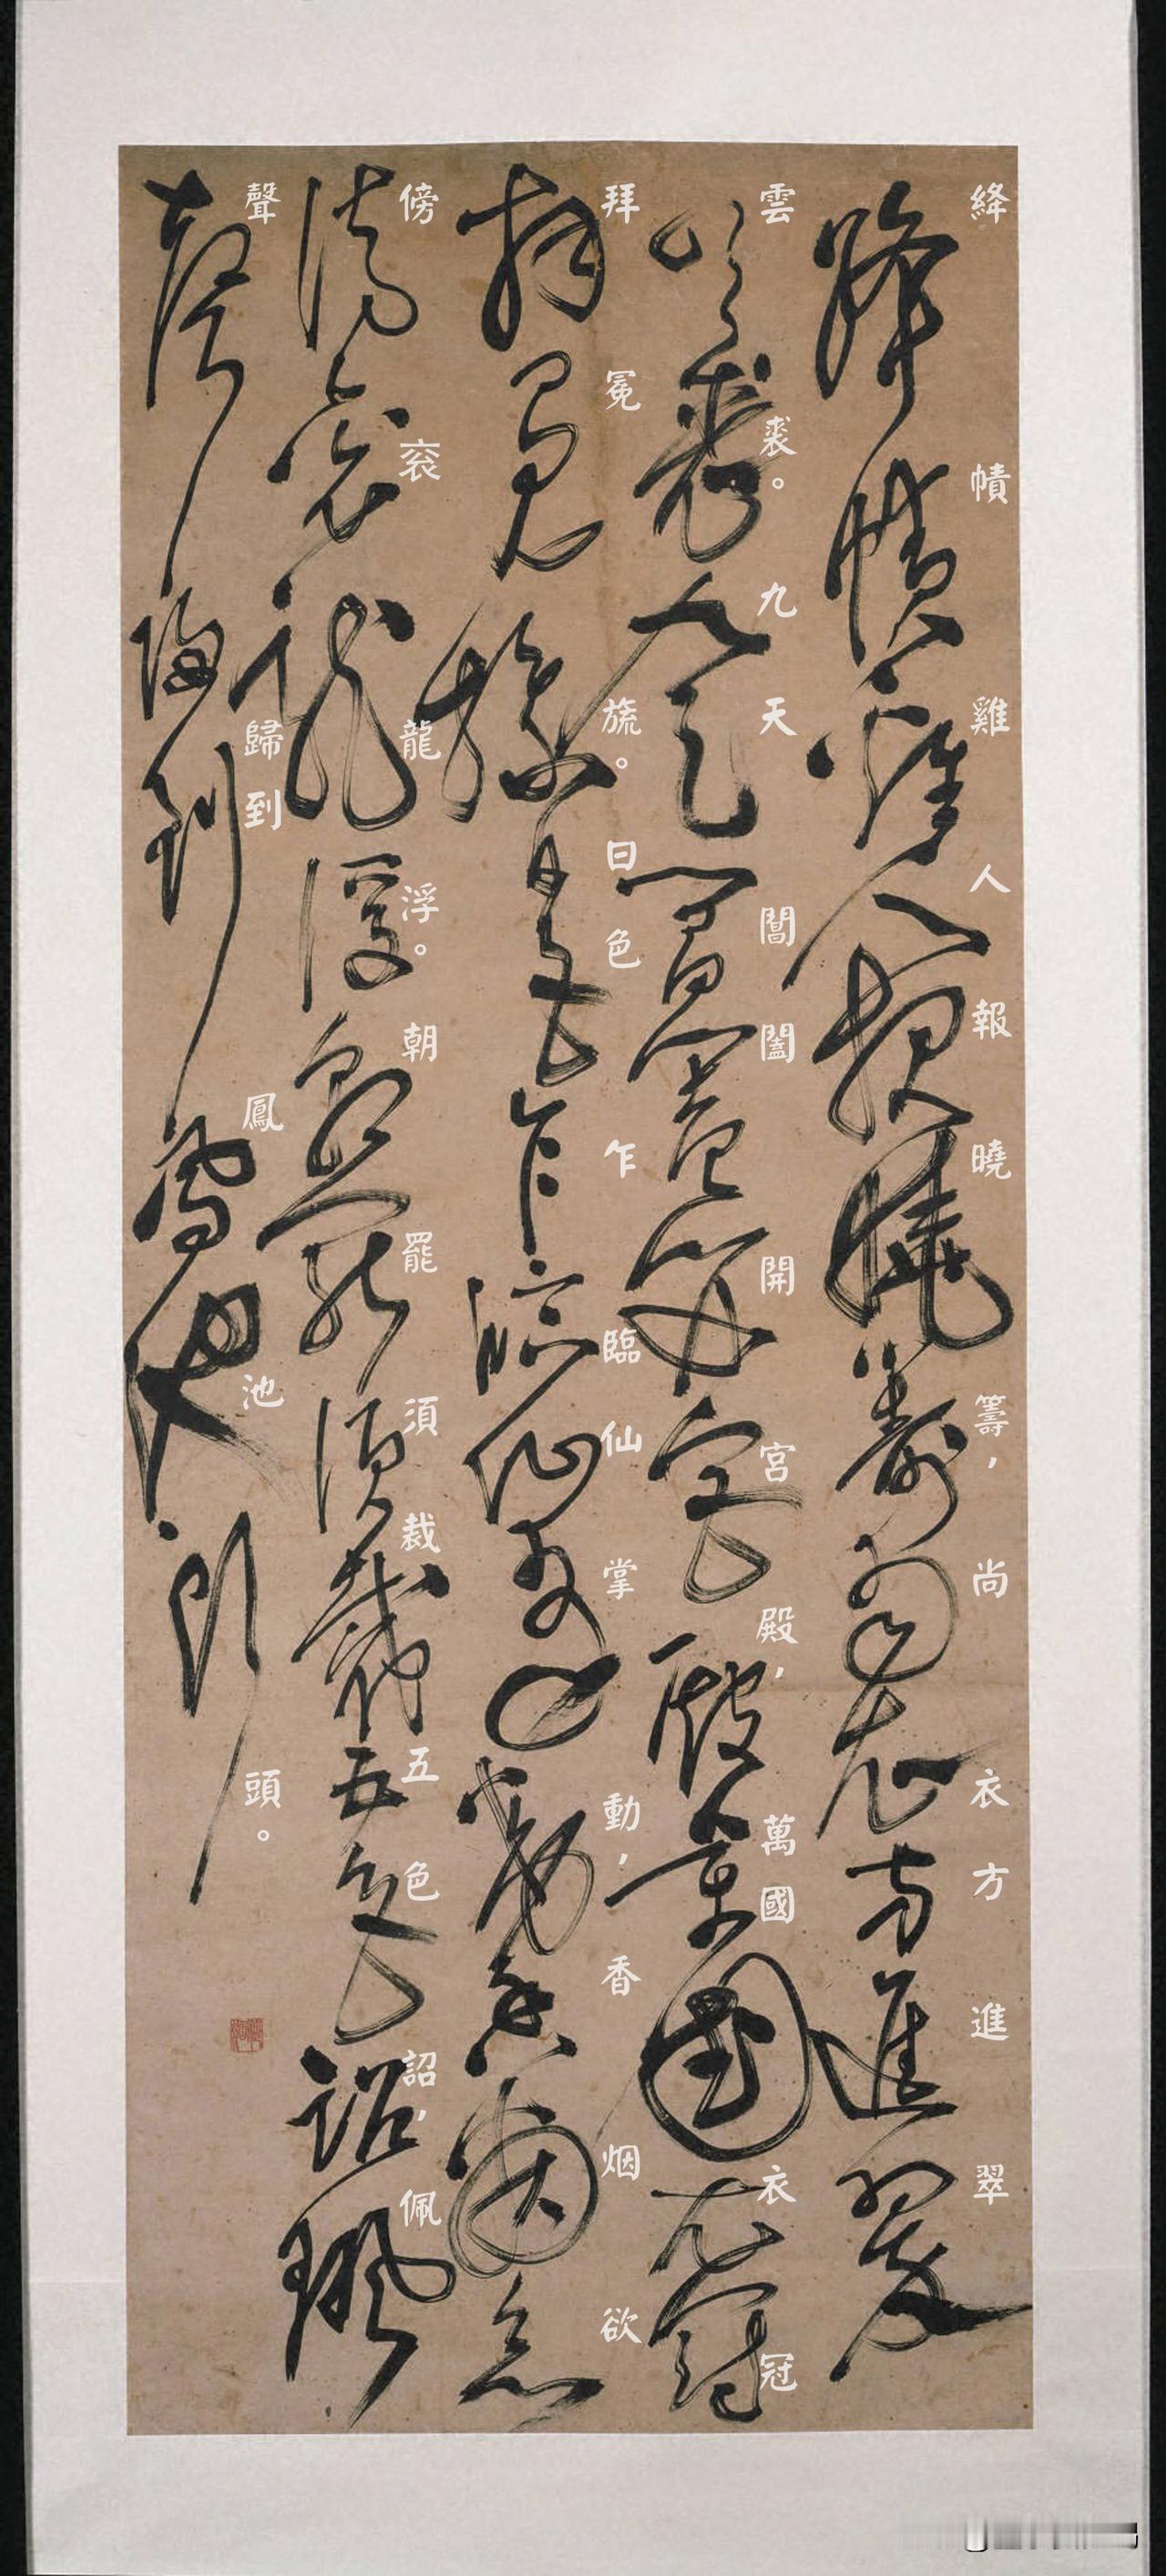 絳幘雞人報曉籌，尚衣方進翠
雲裘。九天閶闔開宮殿，萬國衣冠
拜冕旒。日色乍臨仙掌動，香烟欲
傍衮龍浮。朝罷須裁五色詔，佩
聲歸到鳳池頭。